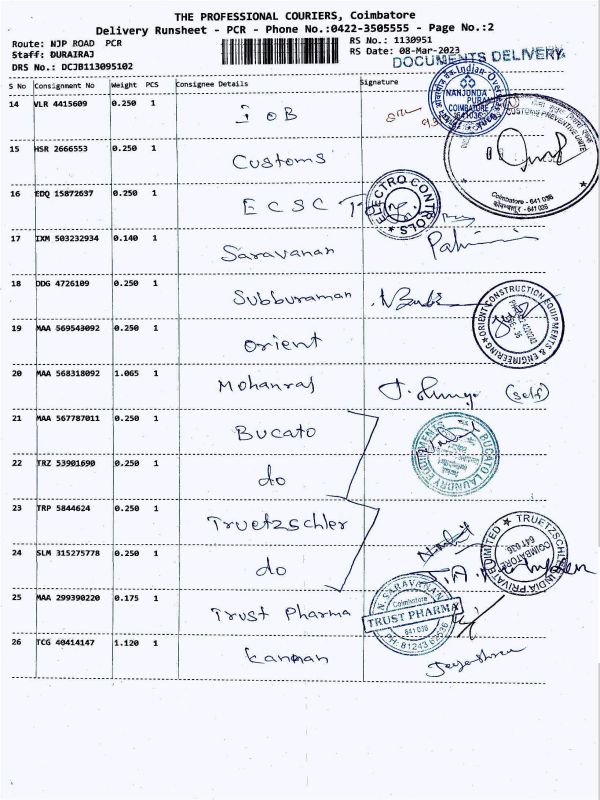 THE PROFESSIONAL COURIERS, Coimbatore
Delivery Runsheet - PCR - Phone No.:0422-3505555 - Page No.:2
Route: NJP ROAD PCR
RS No.: 1130951
Staff: DURAIRAJ
RS Date: 08-Mar-2023
DRS No.: DCJB113095102
DOCUMENTS DELIVERY
S No Consignment No Weight PCS Consignee Details Signature
14 VLR 4415609 0.250 1 IOB
15 HSR 2666553 0.250 1 Customs
16 EDQ 15872637 0.250 1 ECSC
17 IXM 503232934 0.140 1 Saravanan
18 DDG 4726109 0.250 1 Subburaman
19 MAA 569543092 0.250 1 Orient
20 MAA 568318092 1.065 1 Mohanraj (self)
21 MAA 567787011 0.250 1 Bucato
22 TRZ 53901690 0.250 1 do
23 TRP 5844624 0.250 1 Truetzschler
24 SLM 315275778 0.250 1 do
25 MAA 299390220 0.175 1 Trust Pharma
26 TCG 40414147 1.120 1 Kannan
Indian Overseas Bank
NANJUNDA
PURAM
COIMBATORE
641036
CUSTOMS PREVENTIVE UNIT
Coimbatore - 641 038
ELECTRO CONTROLS
ORIENT CONSTRUCTION EQUIPMENTS & ENGINEERING
BUCATO LAUNDRY EQUIPMENTS
TRUETZSCHLER INDIA PRIVATE LIMITED
COIMBATORE
641 036
N. SARAVANAN
Coimbatore
TRUST PHARMA
641 038
PH: 81243 62036